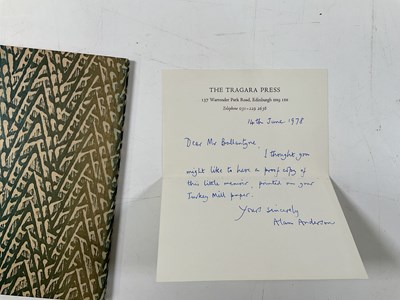 THE TRAGARA PRESS
137 Warrender Park Road, Edinburgh EH9 1DS
Telephone 031-229 2638
14th June 1978
Dear Mr Ballantyne,
I thought you
might like to have a proof copy of
this little memoir, printed on your
Turkey Mill paper.
Yours sincerely
Alan Anderson